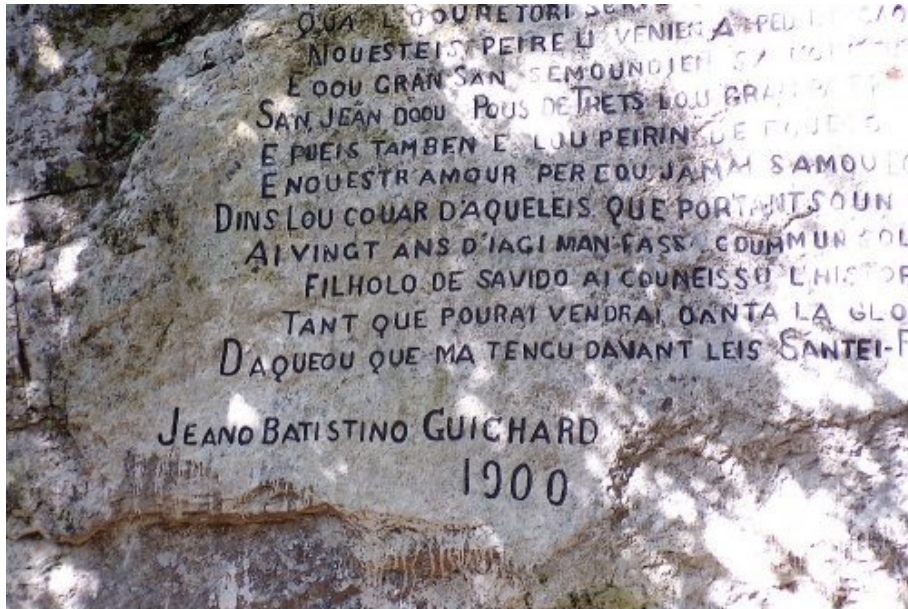 QUA L'OOURETORI
NOUESTEIS PEIRE LI VENIEN A PED
E DOU GRAN SAN SEMOUNDIEN
SAN JEAN DOOU POUS DE TRETS LOU GRAN
E PUEIS TAMBEN E LOU PEIRIN DE
E NOUESTR'AMOUR PER EOU JAMAI
DINS LOU COUAR D'AQUELEIS QUE PORTANT SOUN
AI VINGT ANS D'IAGI MAN FASS COUMMUN
FILHOLO DE SAVIDO AI COUNEISSU L'HISTOR
TANT QUE POURAI VENDRAI CANTA LA GLO
DAQUEOU QUE MA TENGU DAVANT LEIS SANTEI-F
JEANO BATISTINO GUICHARD
1900